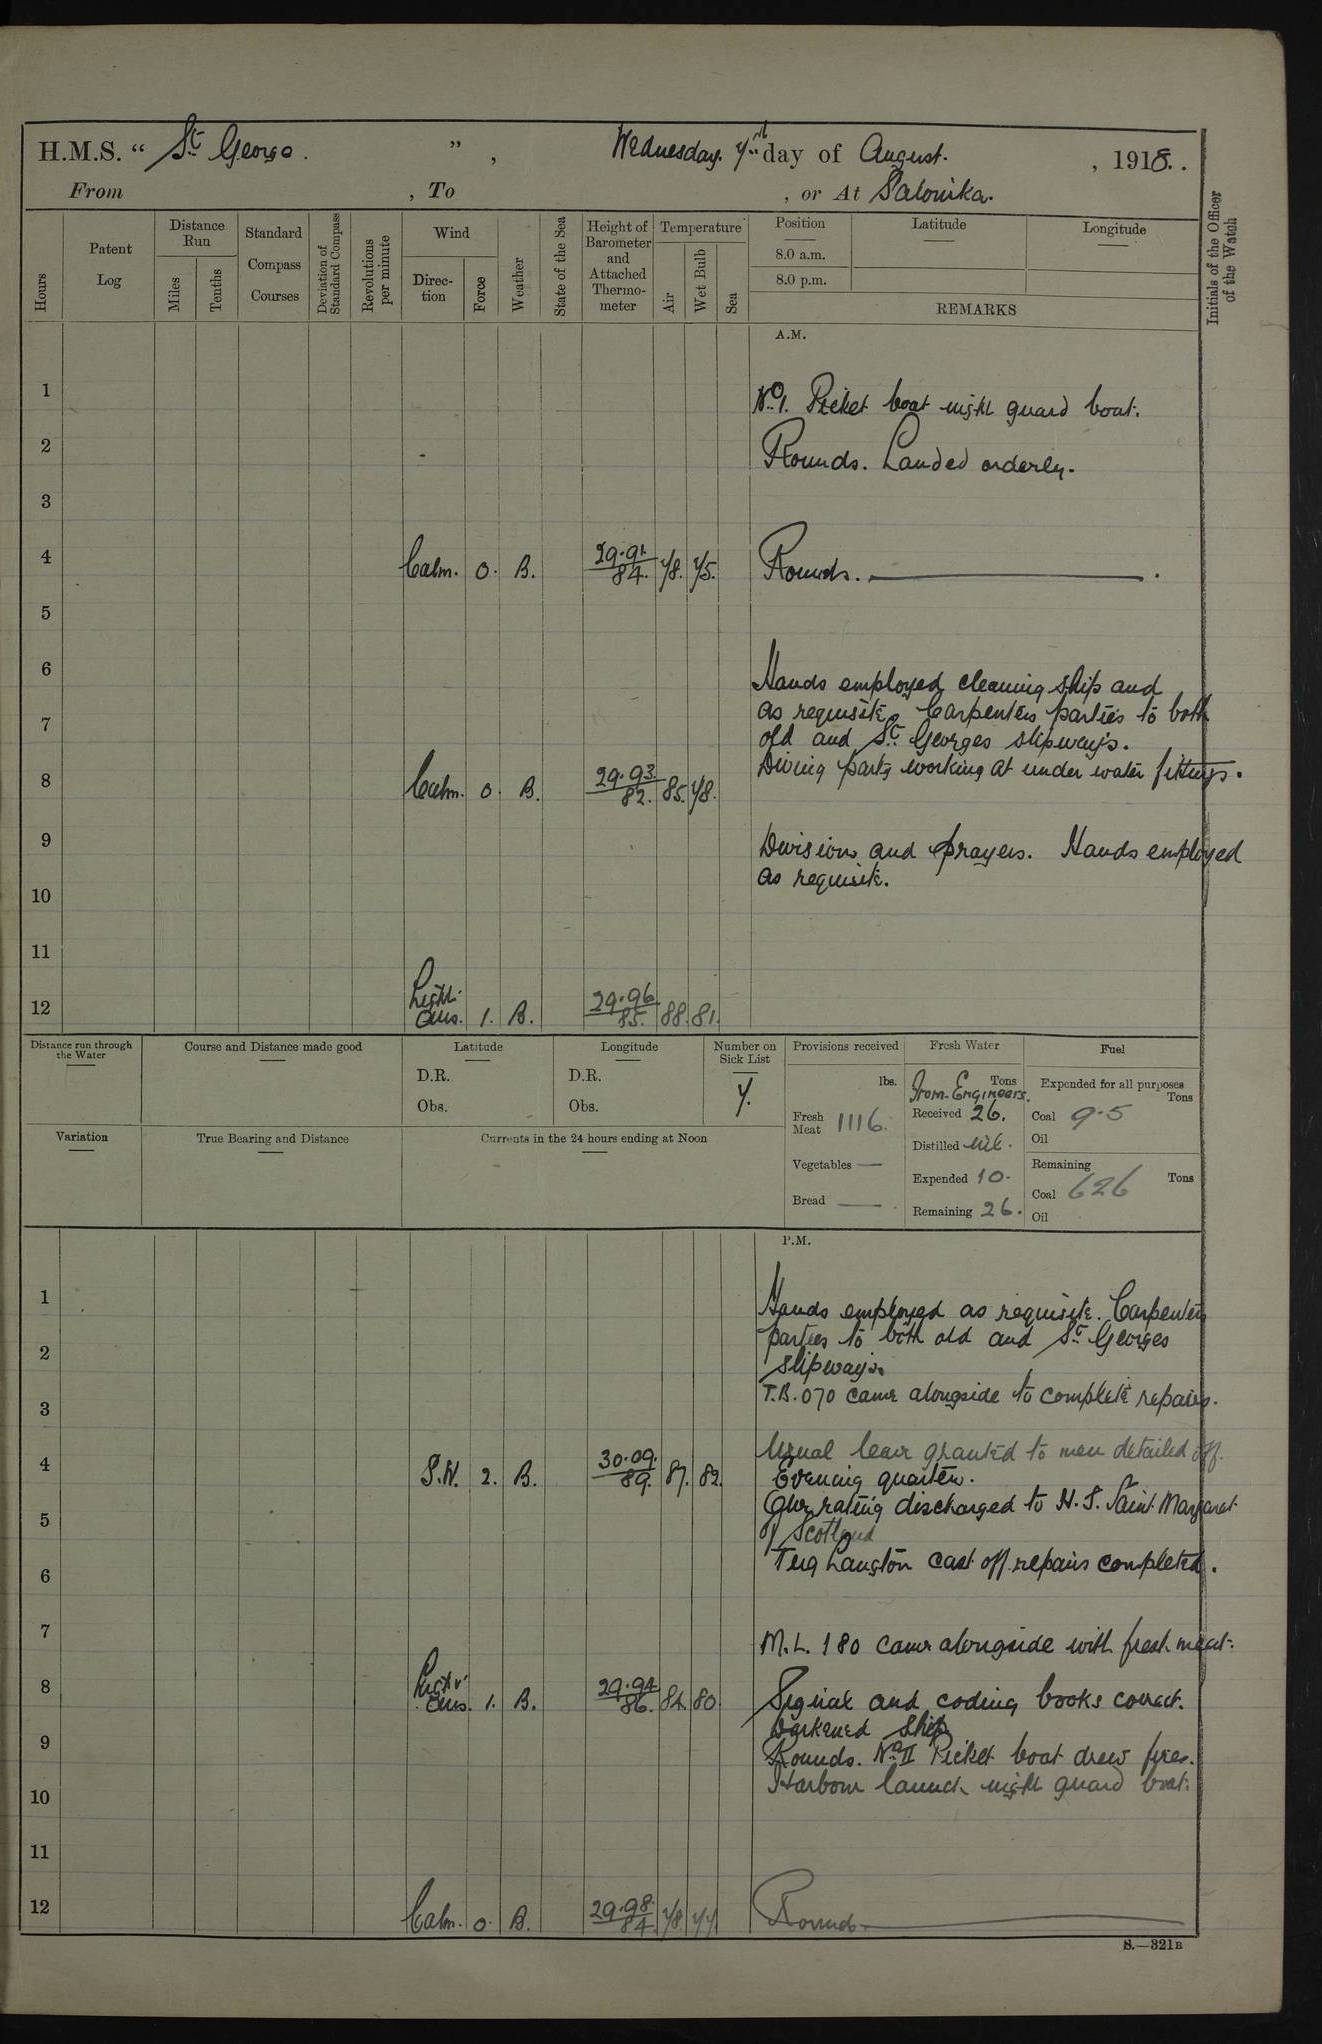 H.M.S. “ St George. ” , Wednesday. 7th day of August. , 1918.
From , To , or At Salonika.
Hours
Patent Log
Distance Run
Miles
Tenths
Standard Compass Courses
Deviation of Standard Compass
Revolutions per minute
Wind
Direction
Force
Weather
State of the Sea
Height of Barometer and Attached Thermometer
Temperature
Air
Wet Bulb
Sea
Position
8.0 a.m.
8.0 p.m.
Latitude
Longitude
REMARKS
Initials of the Officer of the Watch
A.M.
1
No 1. Picket boat night guard boat.
2
Rounds. Landed orderly.
3
4 Calm. 0. B. 29.91. 84. 78. 75. Rounds.
5
6
Hands employed cleaning ship and
7 as requisite. Carpenters parties to both
old and St Georges slipways.
8 Calm. 0. B. 29.93. 82. 85. 78. Diving party working at under water fittings.
9 Divisions and prayers. Hands employed
as requisite.
10
11
12 Light airs. 1. B. 29.96. 85. 88. 81.
Distance run through the Water
Course and Distance made good
Latitude
D.R.
Obs.
Longitude
D.R.
Obs.
Number on Sick List
7.
Provisions received
lbs.
Fresh Meat 1116.
Vegetables —
Bread —
Fresh Water
Tons
From Engineers.
Received 26.
Distilled nil.
Expended 10.
Remaining 26.
Fuel
Expended for all purposes
Tons
Coal 9.5
Oil
Remaining
Tons
Coal 626
Oil
Variation
True Bearing and Distance
Currents in the 24 hours ending at Noon
P.M.
1
Hands employed as requisite. Carpenters
2 parties to both old and St Georges
slipways.
3 T.B. 070 came alongside to complete repairs.
Usual leave granted to men detailed off.
4 S.W. 2. B. 30.09. 89. 87. 82. Evening quarters.
5 One rating discharged to H.S. Saint Margaret
of Scotland
6 Tug Langton cast off repairs completed.
7 M.L. 180 came alongside with fresh meat.
8 Light airs. 1. B. 29.94 86. 84. 80. Signal and coding books correct.
Darkened ship
9 Rounds. No II Picket boat drew fires.
10 Harbour launch night guard boat.
11
12 Calm. 0. B. 29.98. 84. 78. 77. Rounds.
S.—321B